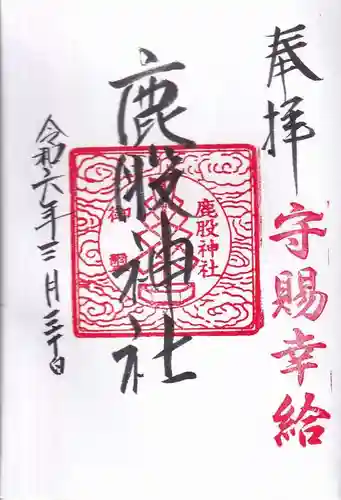 奉拝
守賜幸給
鹿股神社
鹿股神社
令和六年三月三十日